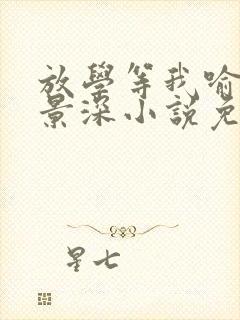 放學等我喻
景深小說免
星七